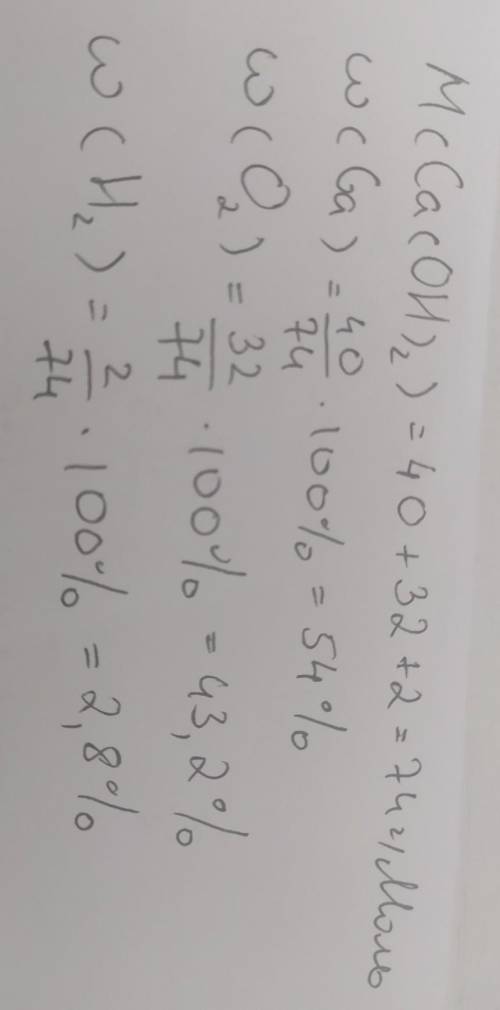 M(Ca(OH)₂) = 40 + 32 + 2 = 74 г/Моль
ω(Ca) = 40/74 · 100% = 54%
ω(O₂) = 32/74 · 100% = 43,2%
ω(H₂) = 2/74 · 100% = 2,8%